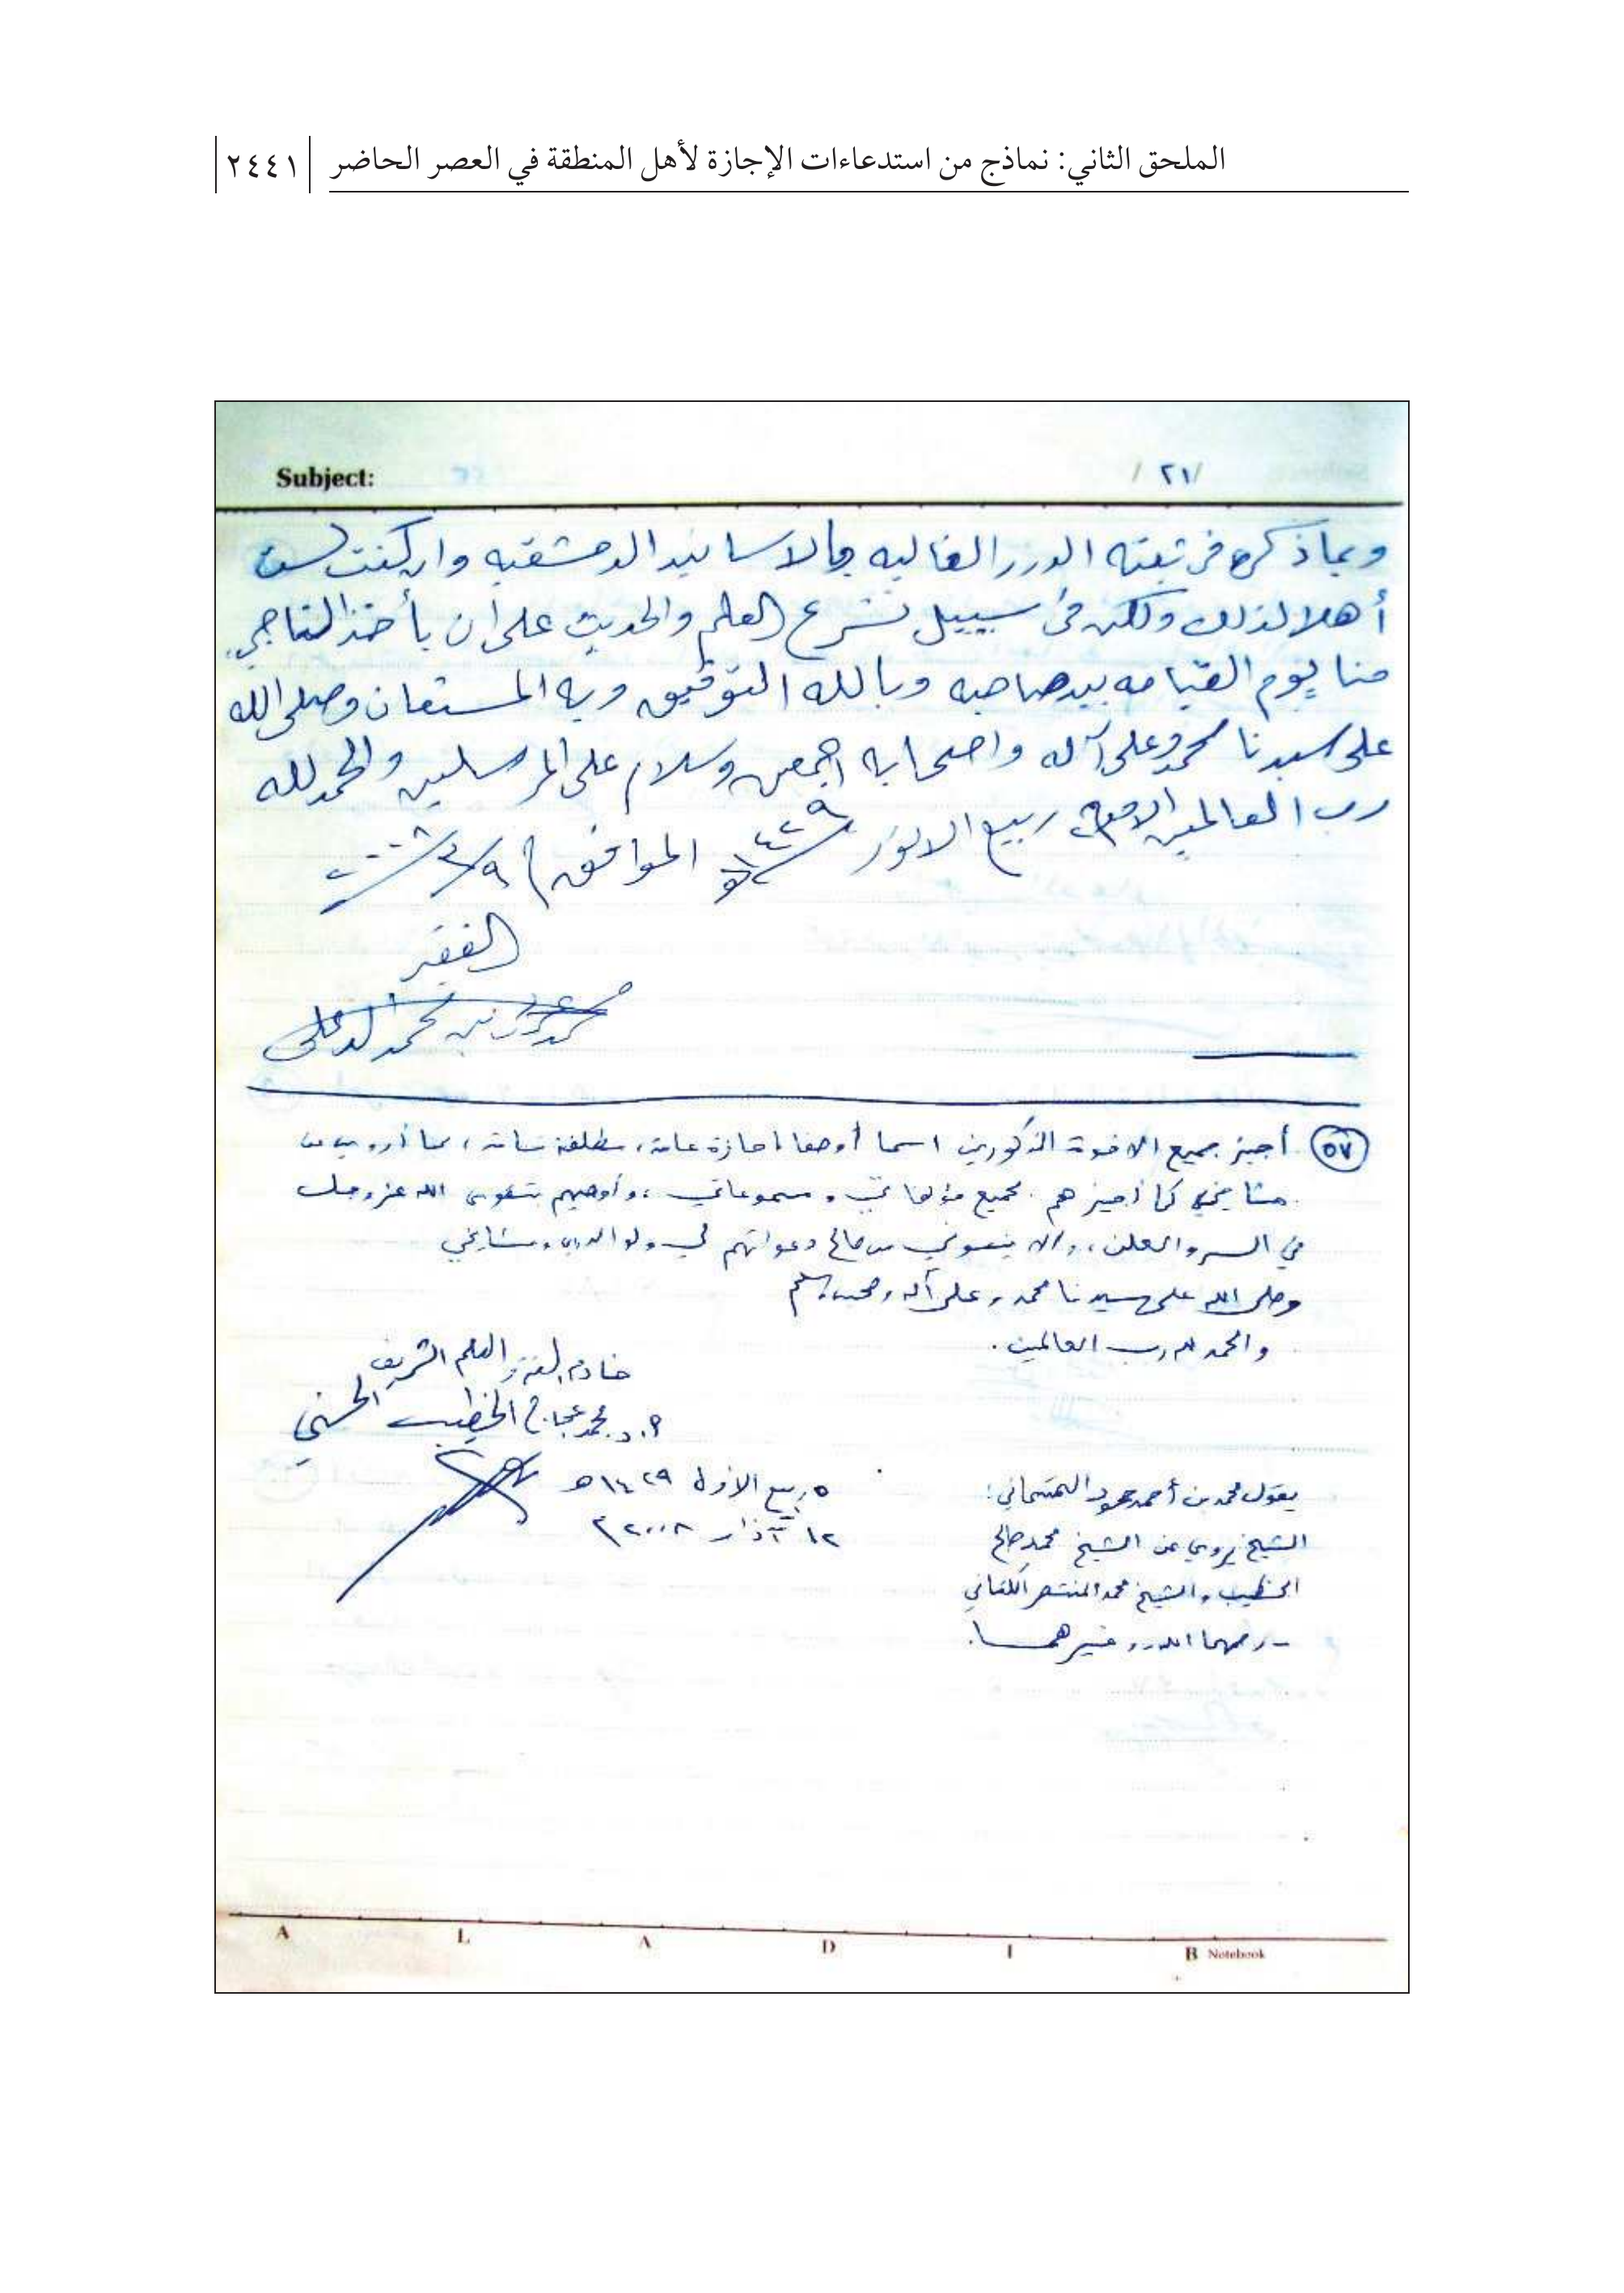 الملحق الثاني: نماذج من استدعاءات الإجازة لأهل المنطقة في العصر الحاضر ٢٤٤١
Subject: /٢١/
وبما ذكره في ثبته الدرر الغاليه بالاسانيد الدمشقيه وان كنت لست
أهلا لذلك ولكن في سبيل نشر العلم والحديث على أن يأخذ الناجي
منا يوم القيامه بيد صاحبه وبالله التوفيق وبه المستعان وصلى الله
على سيدنا محمد وعلى آله واصحابه اجمعين وسلام على المرسلين والحمد لله
رب العالمين ربيع الانور ١٤٢٩ هـ الموافق ٩/٣/٢٠٠٨
الفقير
محمد بن محمد
٥٧ أجيز جميع الاخوة المذكورين اسما أو صفة إجازة عامة، مطلقة تامة، بما أرويه عن
مشايخي كما أجيزهم بجميع مؤلفاتي ومسموعاتي، وأوصيهم بتقوى الله عز وجل
في السر والعلن، وألا ينسوني من صالح دعواتهم لي ولوالدي ومشايخي
وصلى الله على سيدنا محمد وعلى آله وصحبه وسلم
والحمد لله رب العالمين.
خادم السنة والعلم الشريف
أ. د. محمد عجاج الخطيب الحسني
٥ ربيع الأول ١٤٢٩ هـ
١٢ آذار ٢٠٠٨ م
يقول محمد بن أحمد محمود :
الشيخ يروي عن الشيخ محمد صالح
الخطيب والشيخ محمد المنتصر الكتاني
- رحمهما الله - وغيرهما.
A L A D I B Notebook